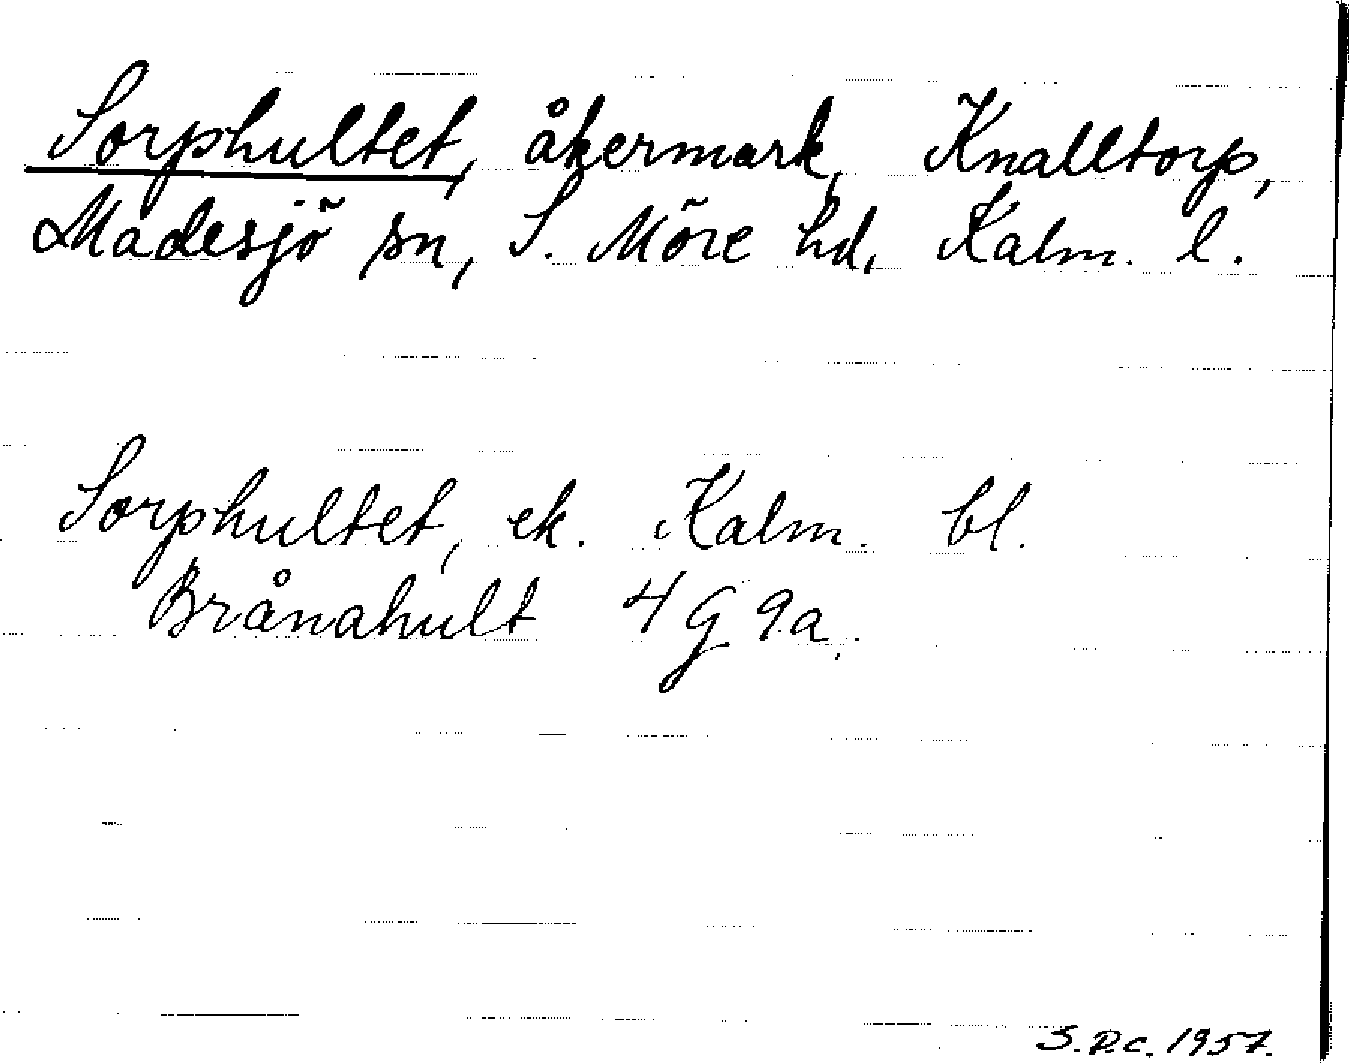 Sorphultet, åkermark, Knalltorp,
Madesjö sn, S. Möre hd, Kalm. l.
Sorphultet, ek. Kalm. bl.
Brånahult 4 G 9a.
S.D.C. 1957